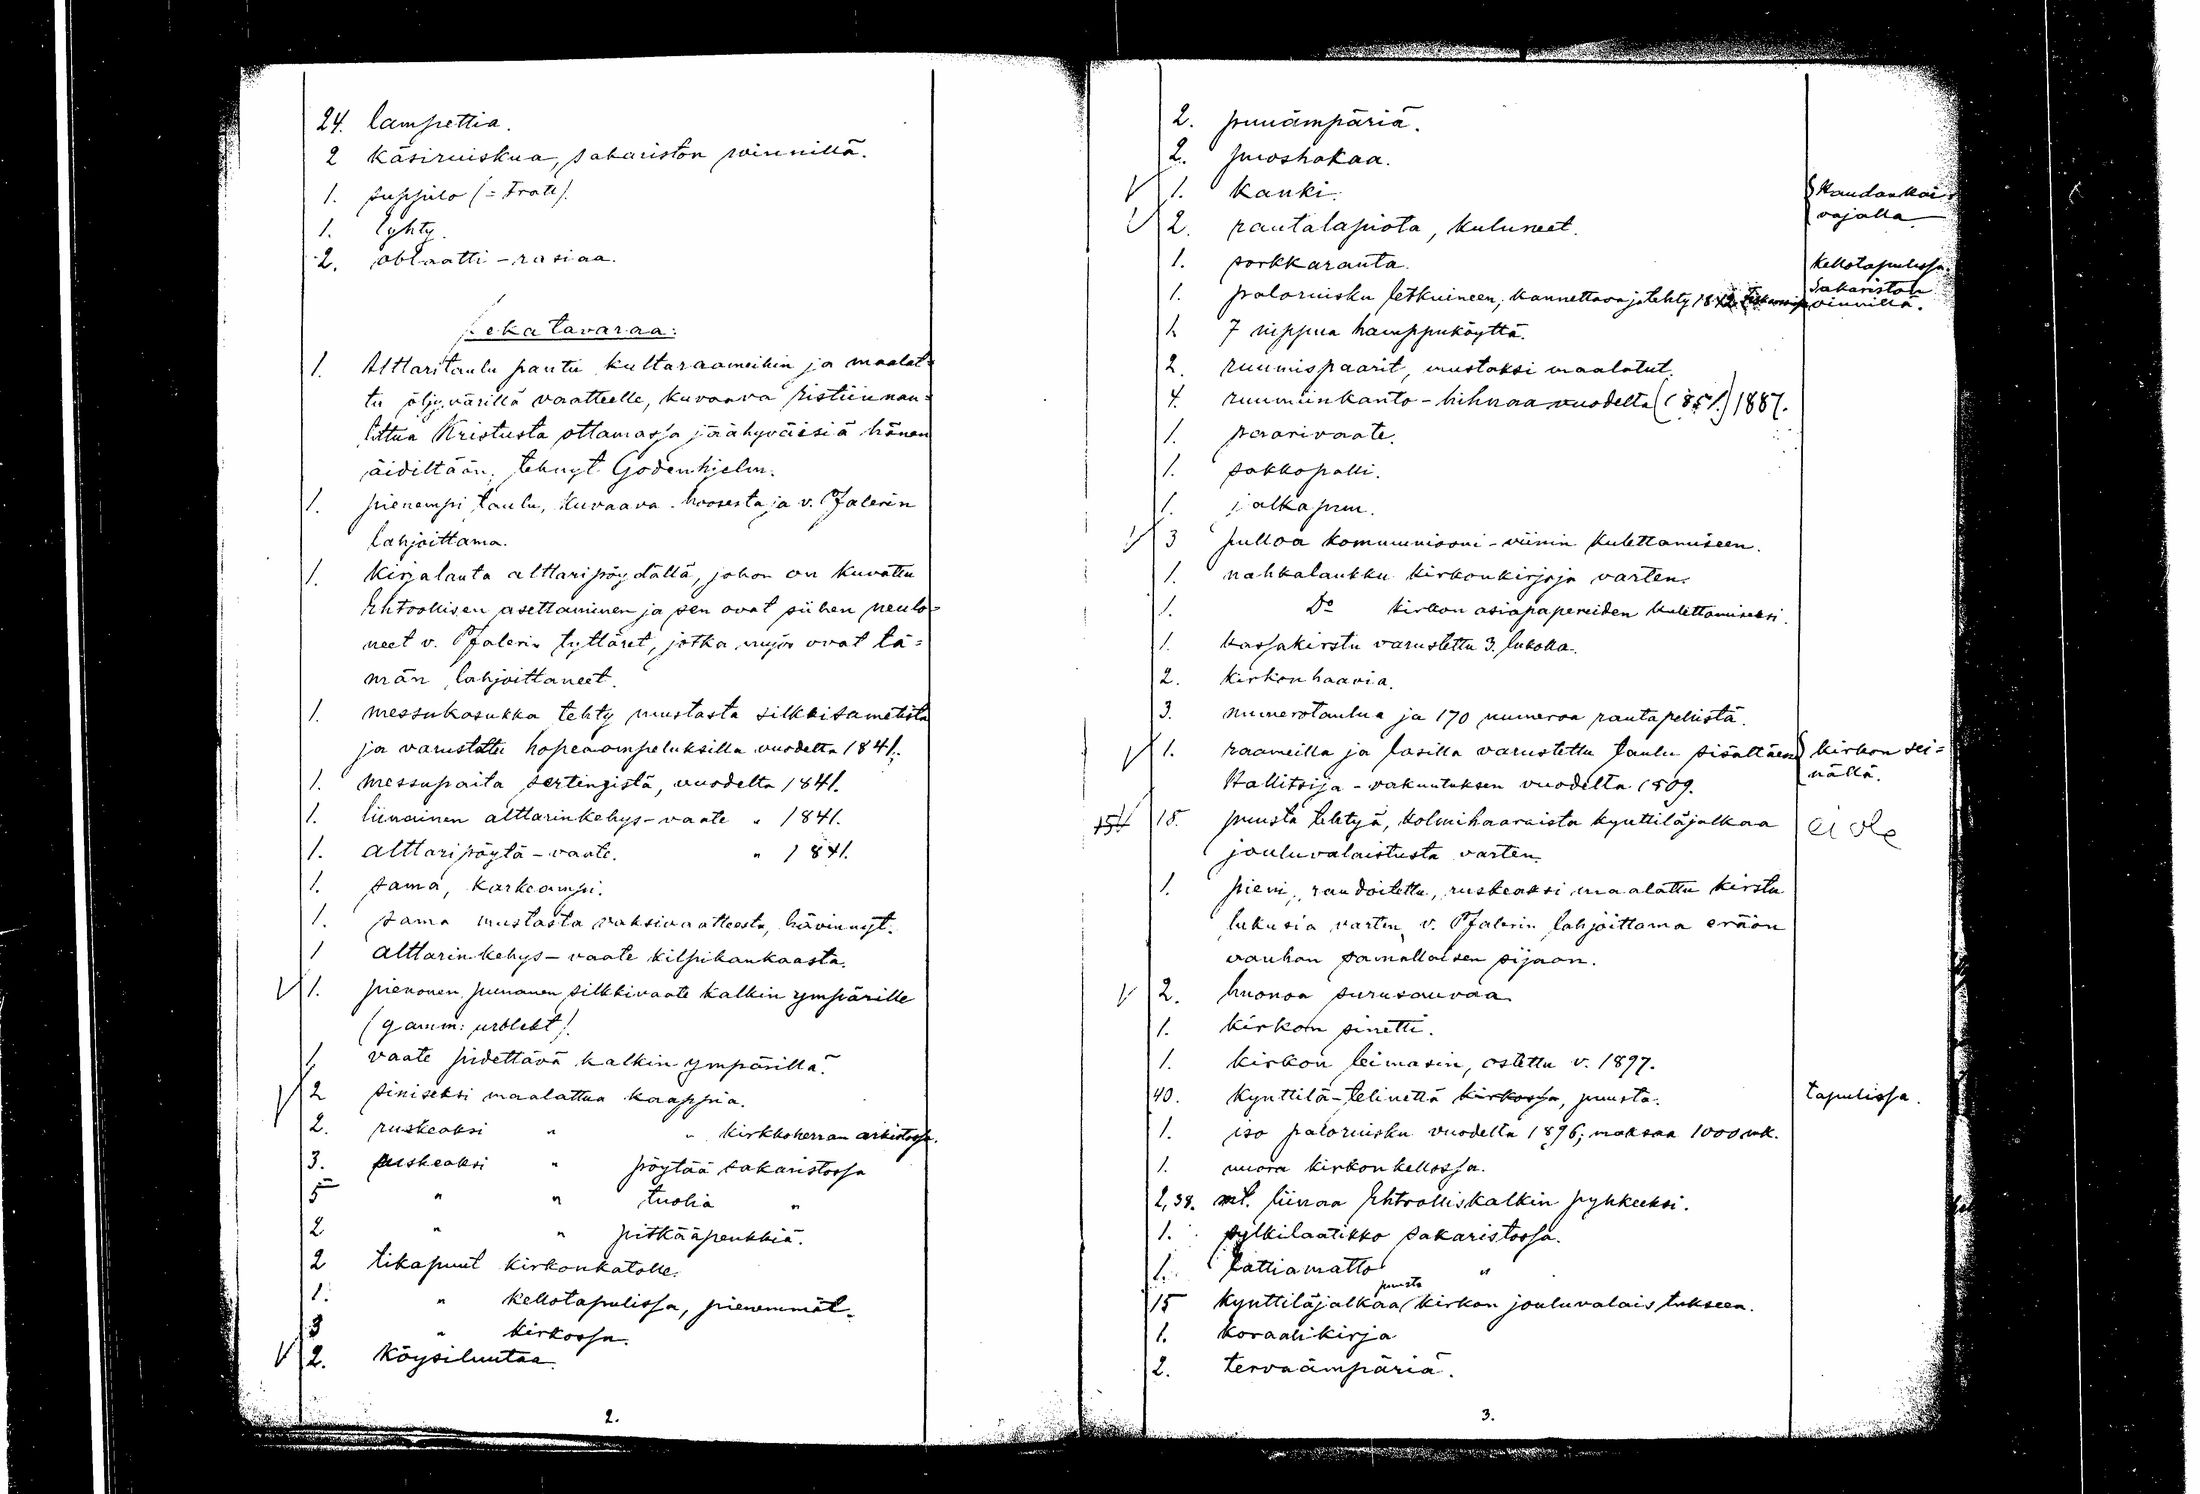 24. lampettia.
2 käsiruiskua, sakariston vinnillä.
1. suppilo (= Tratt).
1. lyhty.
2. oblaatti-rasiaa.
Sekatavaraa:
1. Alttaritaulu pantu kultaraameihin ja maalat=
tu öljyvärillä vaatteelle, kuvaava ristiinnau=
littua Kristusta ottamassa jäähyväisiä hänen
äidiltään; tehnyt Godenhjelm.
1. pienempi taulu, kuvaava ja v. Pfalerin
lahjoittama.
1. Kirjalauta alttaripöydällä, johon on kuvattu
Ehtoollisen asettaminen ja sen ovat siihen neulo=
neet v. Pfalerin tyttäret, jotka myös ovat tä=
män lahjoittaneet.
1. messukasukka tehty mustasta silkkisametista
ja varustettu hopeaompeluksilla vuodelta 1841.
1. messupaita sertingistä, vuodelta 1841.
1. liinainen alttarinkehys-vaate " 1841.
1. alttaripöytä-vaate. " 1841.
1. sama, karkeampi.
1. sama mustasta vaksivaatteesta, hävinnyt.
1 alttarinkehys-vaate kilpikankaasta.
V 1. pienonen punanen silkkivaate kalkin ympärille
(gamm: urblekt).
1. vaate pidettävä kalkin ympärillä.
V 2 siniseksi maalattua kaappia.
2. ruskeaksi " " kirkkoherran arkistossa.
3. ruskeaksi " pöytää sakaristossa
5 " " tuolia "
2 " " pitkääpenkkiä.
2 tikapuut kirkonkatolle.
1. " kellotapulissa, pienemmät.
3 " kirkossa.
V 2. köysiluutaa.
2.
2. puuämpäriä.
2. puoshakaa.
V 1. kanki. {
V 2. rautalapiota, kuluneet. vajalla
1. sorkkarauta. kellotapulissa.
1. paloruisku letkuineen, kannettava ja tehty Sakariston
vinnillä.
1. 7 nippua hamppuköyttä.
2. ruumispaarit, mustaksi maalatut.
4. ruumiinkanto-hihnaa vuodelta (1851.) 1887.
1. paarivaate.
1. sakkopalli.
1. jalkapuu.
V 3 pulloa kommuniooni-viinin kulettamiseen.
1. nahkalaukku kirkonkirjoja varten.
1. Do kirkon asiapapereiden kulettamiseksi.
1. kassakirstu varustettu 3. lukolla.
2. kirkonhaavia.
3. numerotaulua ja 170 numeroa rautapellistä.
V 1. raameilla ja lasilla varustettu taulu sisältäen { kirkon sei=
Hallitsija-vakuutuksen vuodelta 1809. nällä.
15 V 15. puusta tehtyä, kolmihaaraista kynttiläjalkaa ei ole
jouluvalaistusta varten.
1. pieni, raudoitettu, ruskeaksi maalattu kirstu
lukusia varten, v. Pfalerin lahjoittama erään
vanhan samallaisen sijaan.
V 2. huonoa surusauvaa
1. kirkon sinetti.
1. kirkon leimasin, ostettu v. 1897.
40. kynttilä-telinettä kirkossa, puusta. tapulissa.
1. iso paloruisku vuodelta 1896; maksaa 1000 mk.
1. nuora kirkonkellossa.
2,38. mt. liinaa Ehtoolliskalkin pyhkeeksi.
1. sylkilaatikko sakaristossa.
1. lattiamatto "
puusta
15 kynttiläjalkaa kirkon jouluvalaistukseen.
1. koraalikirja
2. tervaämpäriä.
3.